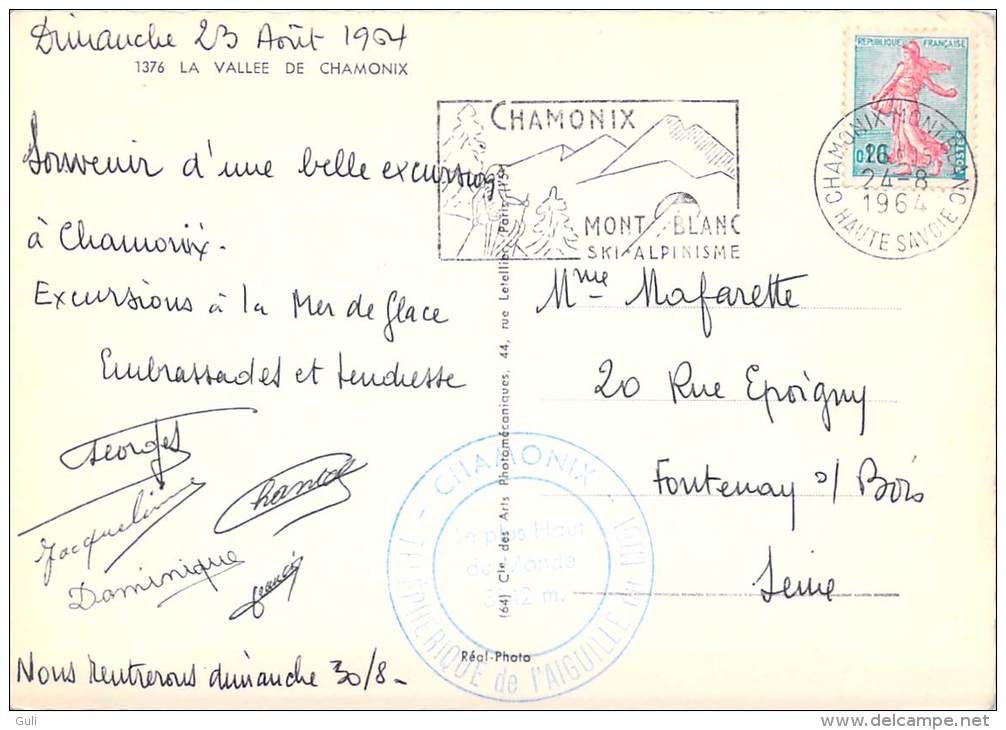 Dimanche 23 Août 1964
1376 LA VALLEE DE CHAMONIX
Souvenir d'une belle excursion
à Chamonix.
Excursions à la Mer de Glace
Embrassades et tendresse
Georges
Jacqueline
Chantal
Dominique
Francis
Nous rentrerons dimanche 30/8
CHAMONIX
MONT BLANC
SKI-ALPINISME
REPUBLIQUE FRANÇAISE
POSTES
CHAMONIX-MONT-BLANC
24-8
1964
HAUTE SAVOIE
Mme Mafarette
20 Rue Epoigny
Fontenay s/ Bois
Seine
(64) Cie des Arts Photomécaniques, 44, rue Letellier, Paris
CHAMONIX
Le plus Haut
du Monde
TÉLÉPHÉRIQUE de l'AIGUILLE du MIDI
Réal-Photo
Guli
www.delcampe.net